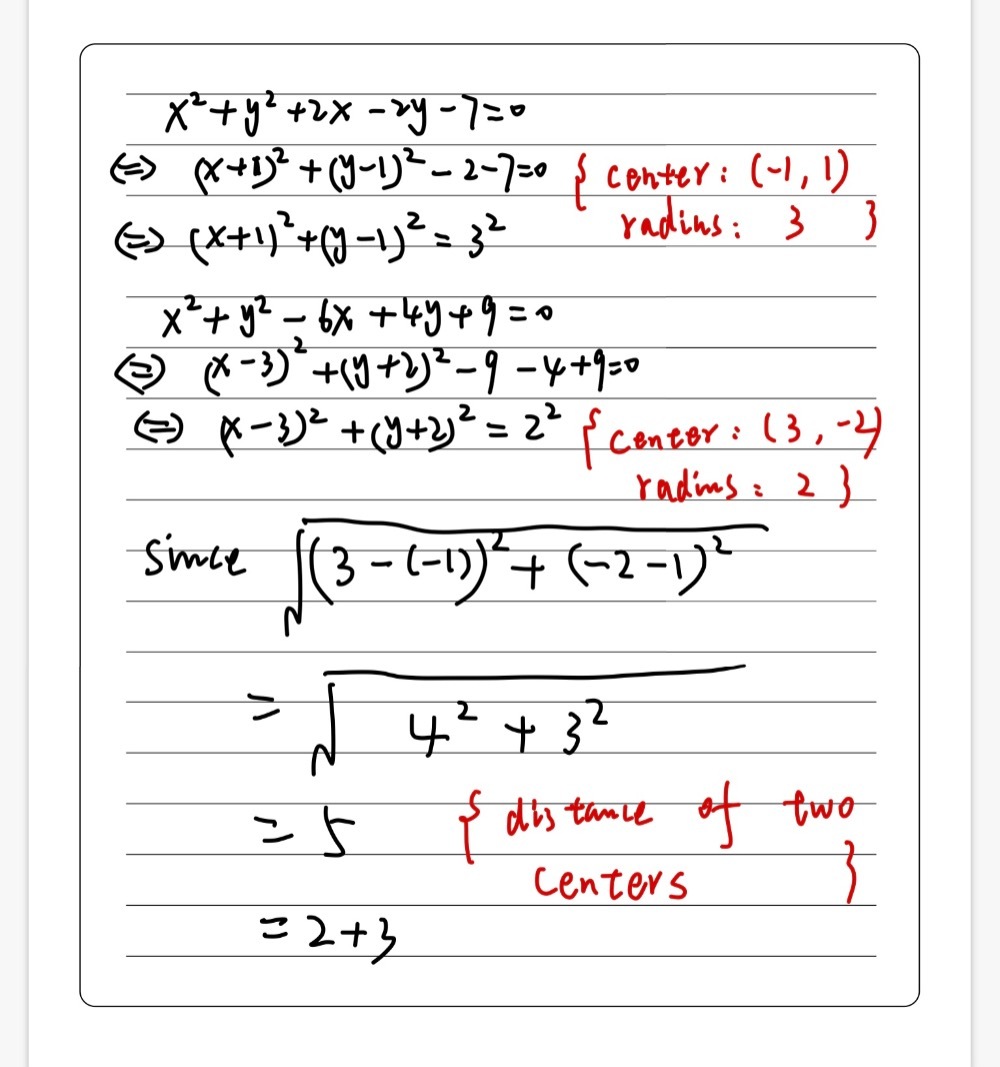 x²+y²+2x-2y-7=0
⇔ (x+1)²+(y-1)²-2-7=0 { center: (-1, 1)
radius: 3 }
⇔ (x+1)²+(y-1)²=3²
x²+y²-6x+4y+9=0
⇔ (x-3)²+(y+2)²-9-4+9=0
⇔ (x-3)²+(y+2)²=2² { center: (3, -2)
radius: 2 }
Since √((3-(-1))²+(-2-1)²)
= √(4²+3²)
= 5 { distance of two
centers }
= 2+3